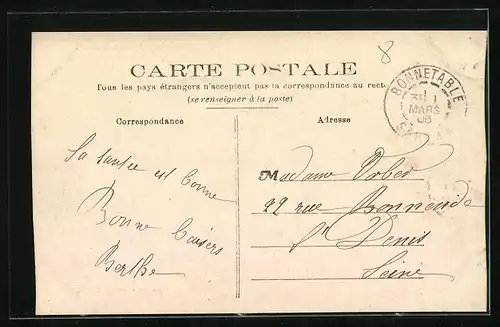 8
CARTE POSTALE
Tous les pays étrangers n'acceptent pas la correspondance au recto
(se renseigner à la poste)
BONNETABLE
MARS
06
Correspondance
Adresse
Sa santée est bonne
Bonne baisers
Berthe
Madame
22 rue
St Denis
Seine